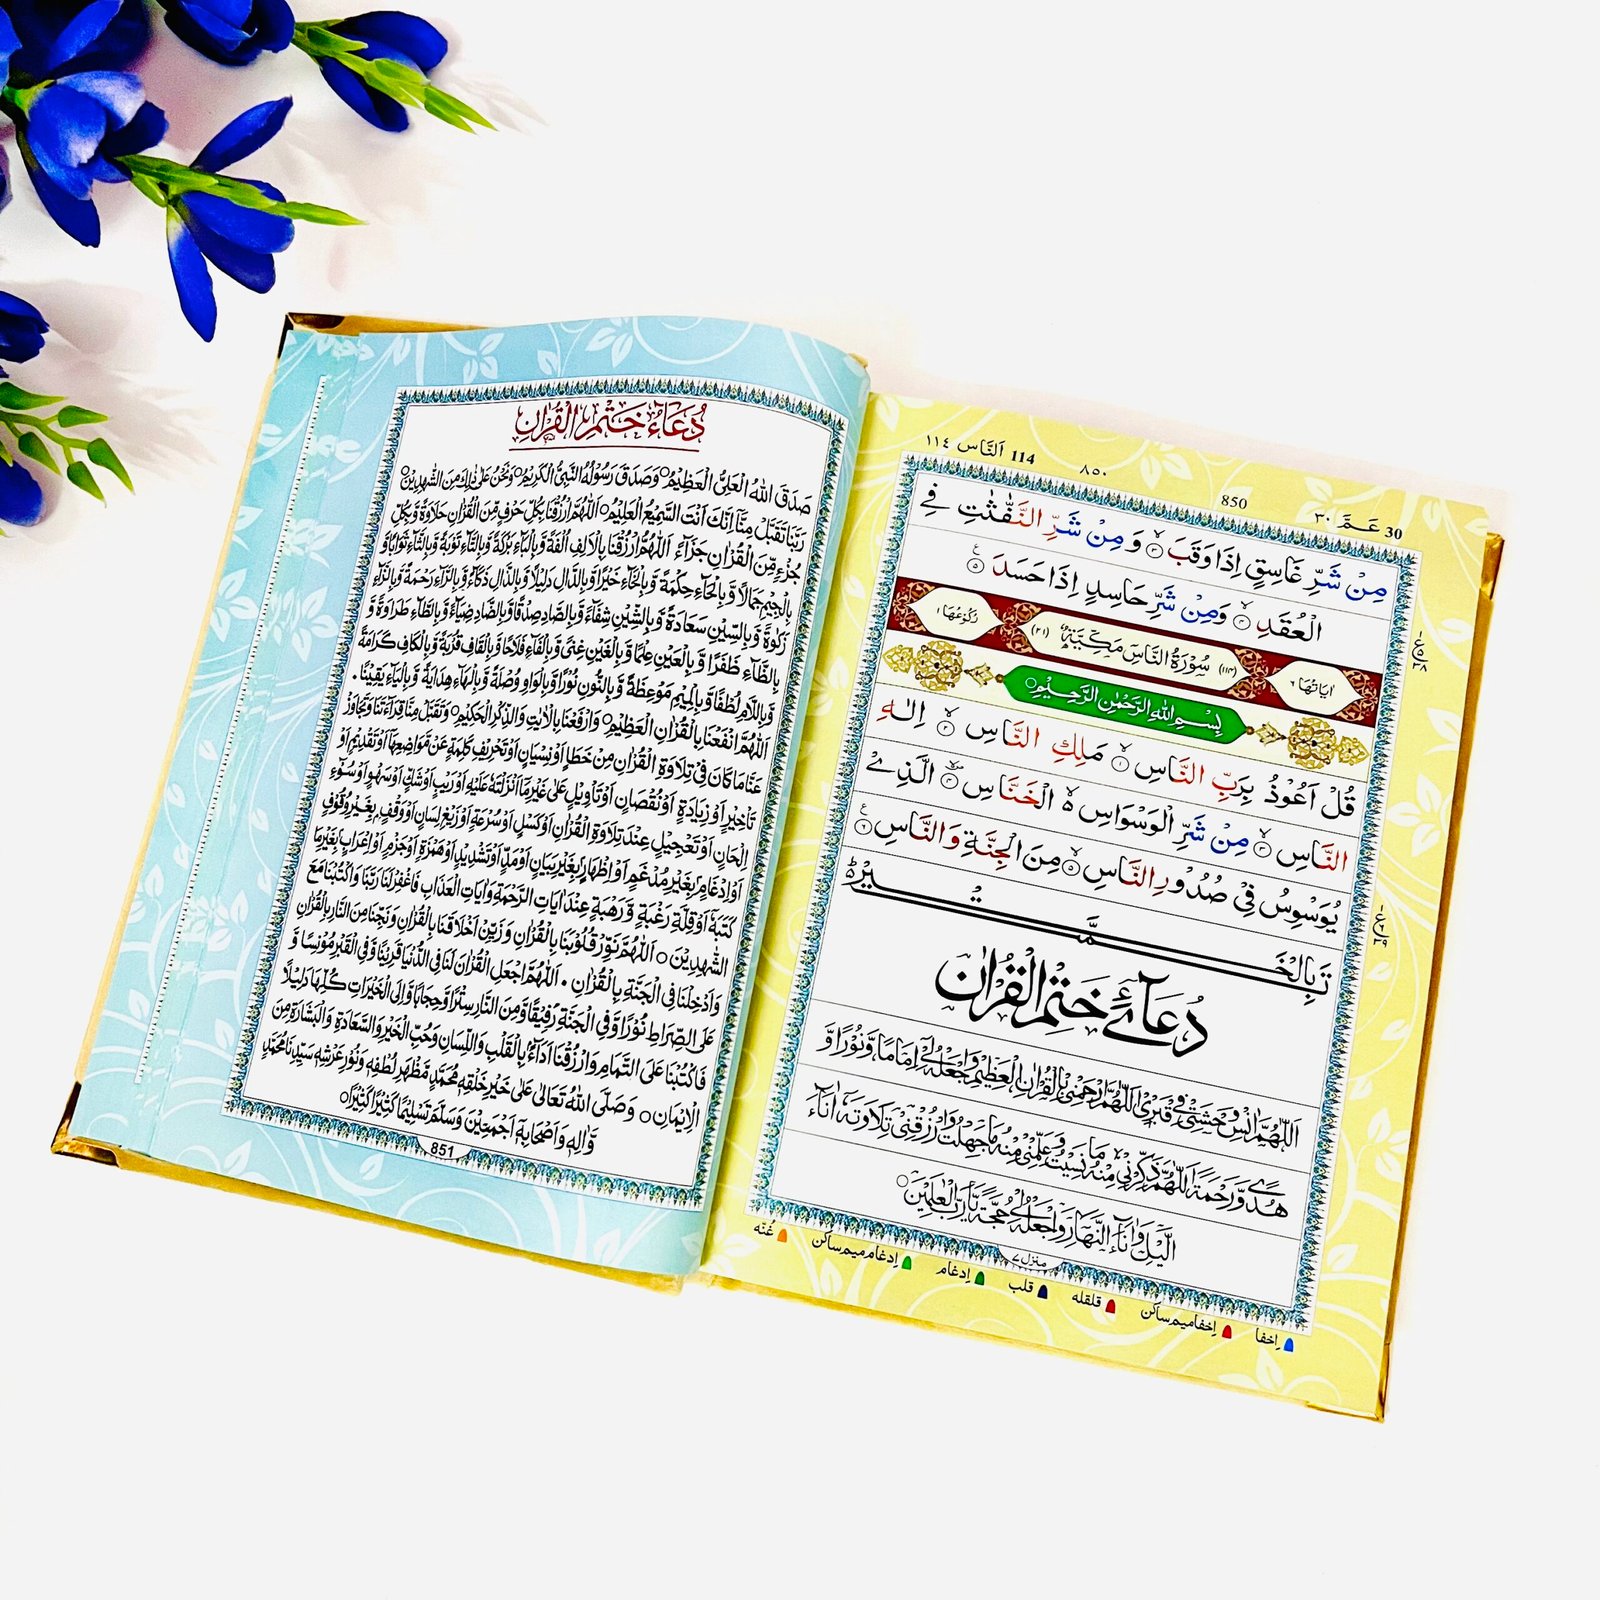 ٣٠ عَمَّ 30
850
٨٥٠
١١٤ اَلنَّاس 114
مِنْ شَرِّ غَاسِقٍ اِذَا وَقَبَ ۙ ٣ وَمِنْ شَرِّ النَّفّٰثٰتِ فِي
الْعُقَدِ ۙ ٤ وَمِنْ شَرِّ حَاسِدٍ اِذَا حَسَدَ ٥
اٰيَاتُهَا ٦ (١١٤) سُوْرَةُ النَّاسِ مَكِّيَّةٌ (٢١) رُكُوْعُهَا ١
بِسْمِ اللّٰهِ الرَّحْمٰنِ الرَّحِيْمِ
قُلْ اَعُوْذُ بِرَبِّ النَّاسِ ۙ ١ مَلِكِ النَّاسِ ۙ ٢ اِلٰهِ
النَّاسِ ۙ ٣ مِنْ شَرِّ الْوَسْوَاسِ ۙ الْخَنَّاسِ ٤ الَّذِيْ
يُوَسْوِسُ فِيْ صُدُوْرِ النَّاسِ ۙ ٥ مِنَ الْجِنَّةِ وَالنَّاسِ ٦
تَمَّتْ بِالْخَيْرِ
دُعَآئے خَتْمُ الْقُرْاٰن
اَللّٰهُمَّ اٰنِسْ وَحْشَتِيْ فِيْ قَبْرِيْ اَللّٰهُمَّ ارْحَمْنِيْ بِالْقُرْاٰنِ الْعَظِيْمِ وَاجْعَلْهُ لِيْ اِمَامًا وَّنُوْرًا وَّ
هُدًى وَّرَحْمَةً اَللّٰهُمَّ ذَكِّرْنِيْ مِنْهُ مَا نَسِيْتُ وَعَلِّمْنِيْ مِنْهُ مَا جَهِلْتُ وَارْزُقْنِيْ تِلَاوَتَهٗ اٰنَآءَ
الَّيْلِ وَاٰنَآءَ النَّهَارِ وَاجْعَلْهُ لِيْ حُجَّةً يَّا رَبَّ الْعٰلَمِيْنَ
منزل ٧
اِخفا اِخفا میم ساکن قلقله قلب اِدغام اِدغام میم ساکن غُنّه
دُعَآءُ خَتْمِ الْقُرْاٰنِ
صَدَقَ اللّٰهُ الْعَلِيُّ الْعَظِيْمُ وَصَدَقَ رَسُوْلُهُ النَّبِيُّ الْكَرِيْمُ وَنَحْنُ عَلٰى ذٰلِكَ مِنَ الشّٰهِدِيْنَ
رَبَّنَا تَقَبَّلْ مِنَّا اِنَّكَ اَنْتَ السَّمِيْعُ الْعَلِيْمُ اَللّٰهُمَّ ارْزُقْنَا بِكُلِّ حَرْفٍ مِّنَ الْقُرْاٰنِ حَلَاوَةً وَّبِكُلِّ
جُزْءٍ مِّنَ الْقُرْاٰنِ جَزَآءً اَللّٰهُمَّ ارْزُقْنَا بِالْاَلِفِ اُلْفَةً وَّبِالْبَآءِ بَرَكَةً وَّبِالتَّآءِ تَوْبَةً وَّبِالثَّآءِ ثَوَابًا وَّ
بِالْجِيْمِ جَمَالًا وَّبِالْحَآءِ حِكْمَةً وَّبِالْخَآءِ خَيْرًا وَّبِالدَّالِ دَلِيْلًا وَّبِالذَّالِ ذَكَآءً وَّبِالرَّآءِ رَحْمَةً وَّبِالزَّآءِ
زَكٰوةً وَّبِالسِّيْنِ سَعَادَةً وَّبِالشِّيْنِ شِفَآءً وَّبِالصَّادِ صِدْقًا وَّبِالضَّادِ ضِيَآءً وَّبِالطَّآءِ طَرَاوَةً وَّ
بِالظَّآءِ ظَفَرًا وَّبِالْعَيْنِ عِلْمًا وَّبِالْغَيْنِ غِنًى وَّبِالْفَآءِ فَلَاحًا وَّبِالْقَافِ قُرْبَةً وَّبِالْكَافِ كَرَامَةً
وَّبِاللَّامِ لُطْفًا وَّبِالْمِيْمِ مَوْعِظَةً وَّبِالنُّوْنِ نُوْرًا وَّبِالْوَاوِ وُصْلَةً وَّبِالْهَآءِ هِدَايَةً وَّبِالْيَآءِ يَقِيْنًا
اَللّٰهُمَّ انْفَعْنَا بِالْقُرْاٰنِ الْعَظِيْمِ وَارْفَعْنَا بِالْاٰيٰتِ وَالذِّكْرِ الْحَكِيْمِ وَتَقَبَّلْ مِنَّا قِرَآءَتَنَا وَتَجَاوَزْ
عَنَّا مَا كَانَ فِيْ تِلَاوَةِ الْقُرْاٰنِ مِنْ خَطَاٍ اَوْ نِسْيَانٍ اَوْ تَحْرِيْفِ كَلِمَةٍ عَنْ مَّوَاضِعِهَا اَوْ تَقْدِيْمٍ اَوْ
تَاْخِيْرٍ اَوْ زِيَادَةٍ اَوْ نُقْصَانٍ اَوْ تَاْوِيْلٍ عَلٰى غَيْرِ مَا اَنْزَلْتَهٗ عَلَيْهِ اَوْ رَيْبٍ اَوْ شَكٍّ اَوْ سَهْوٍ اَوْ سُوْٓءِ
اِلْحَانٍ اَوْ تَعْجِيْلٍ عِنْدَ تِلَاوَةِ الْقُرْاٰنِ اَوْ كَسْلٍ اَوْ سُرْعَةٍ اَوْ زَيْغِ لِسَانٍ اَوْ وَقْفٍ بِغَيْرِ وُقُوْفٍ
اَوْ اِدْغَامٍ بِغَيْرِ مُدْغَمٍ اَوْ اِظْهَارٍ بِغَيْرِ بَيَانٍ اَوْ مَدٍّ اَوْ تَشْدِيْدٍ اَوْ هَمْزَةٍ اَوْ جَزْمٍ اَوْ اِعْرَابٍ بِغَيْرِ مَا
كَتَبَهٗ اَوْ قِلَّةِ رَغْبَةٍ وَّرَهْبَةٍ عِنْدَ اٰيَاتِ الرَّحْمَةِ وَاٰيَاتِ الْعَذَابِ فَاغْفِرْ لَنَا رَبَّنَا وَاكْتُبْنَا مَعَ
الشّٰهِدِيْنَ اَللّٰهُمَّ نَوِّرْ قُلُوْبَنَا بِالْقُرْاٰنِ وَزَيِّنْ اَخْلَاقَنَا بِالْقُرْاٰنِ وَنَجِّنَا مِنَ النَّارِ بِالْقُرْاٰنِ
وَاَدْخِلْنَا فِي الْجَنَّةِ بِالْقُرْاٰنِ اَللّٰهُمَّ اجْعَلِ الْقُرْاٰنَ لَنَا فِي الدُّنْيَا قَرِيْنًا وَّفِي الْقَبْرِ مُوْنِسًا وَّ
عَلَى الصِّرَاطِ نُوْرًا وَّفِي الْجَنَّةِ رَفِيْقًا وَّمِنَ النَّارِ سِتْرًا وَّحِجَابًا وَّاِلَى الْخَيْرَاتِ كُلِّهَا دَلِيْلًا
فَاكْتُبْنَا عَلَى التَّمَامِ وَارْزُقْنَا اَدَآءً بِالْقَلْبِ وَاللِّسَانِ وَحُبِّ الْخَيْرِ وَالسَّعَادَةِ وَالْبَشَارَةِ مِنَ
الْاِيْمَانِ وَصَلَّى اللّٰهُ تَعَالٰى عَلٰى خَيْرِ خَلْقِهٖ مُحَمَّدٍ مَّظْهَرِ لُطْفِهٖ وَنُوْرِ عَرْشِهٖ سَيِّدِنَا مُحَمَّدٍ
وَّاٰلِهٖ وَاَصْحَابِهٖ اَجْمَعِيْنَ وَسَلَّمَ تَسْلِيْمًا كَثِيْرًا كَثِيْرًا
851